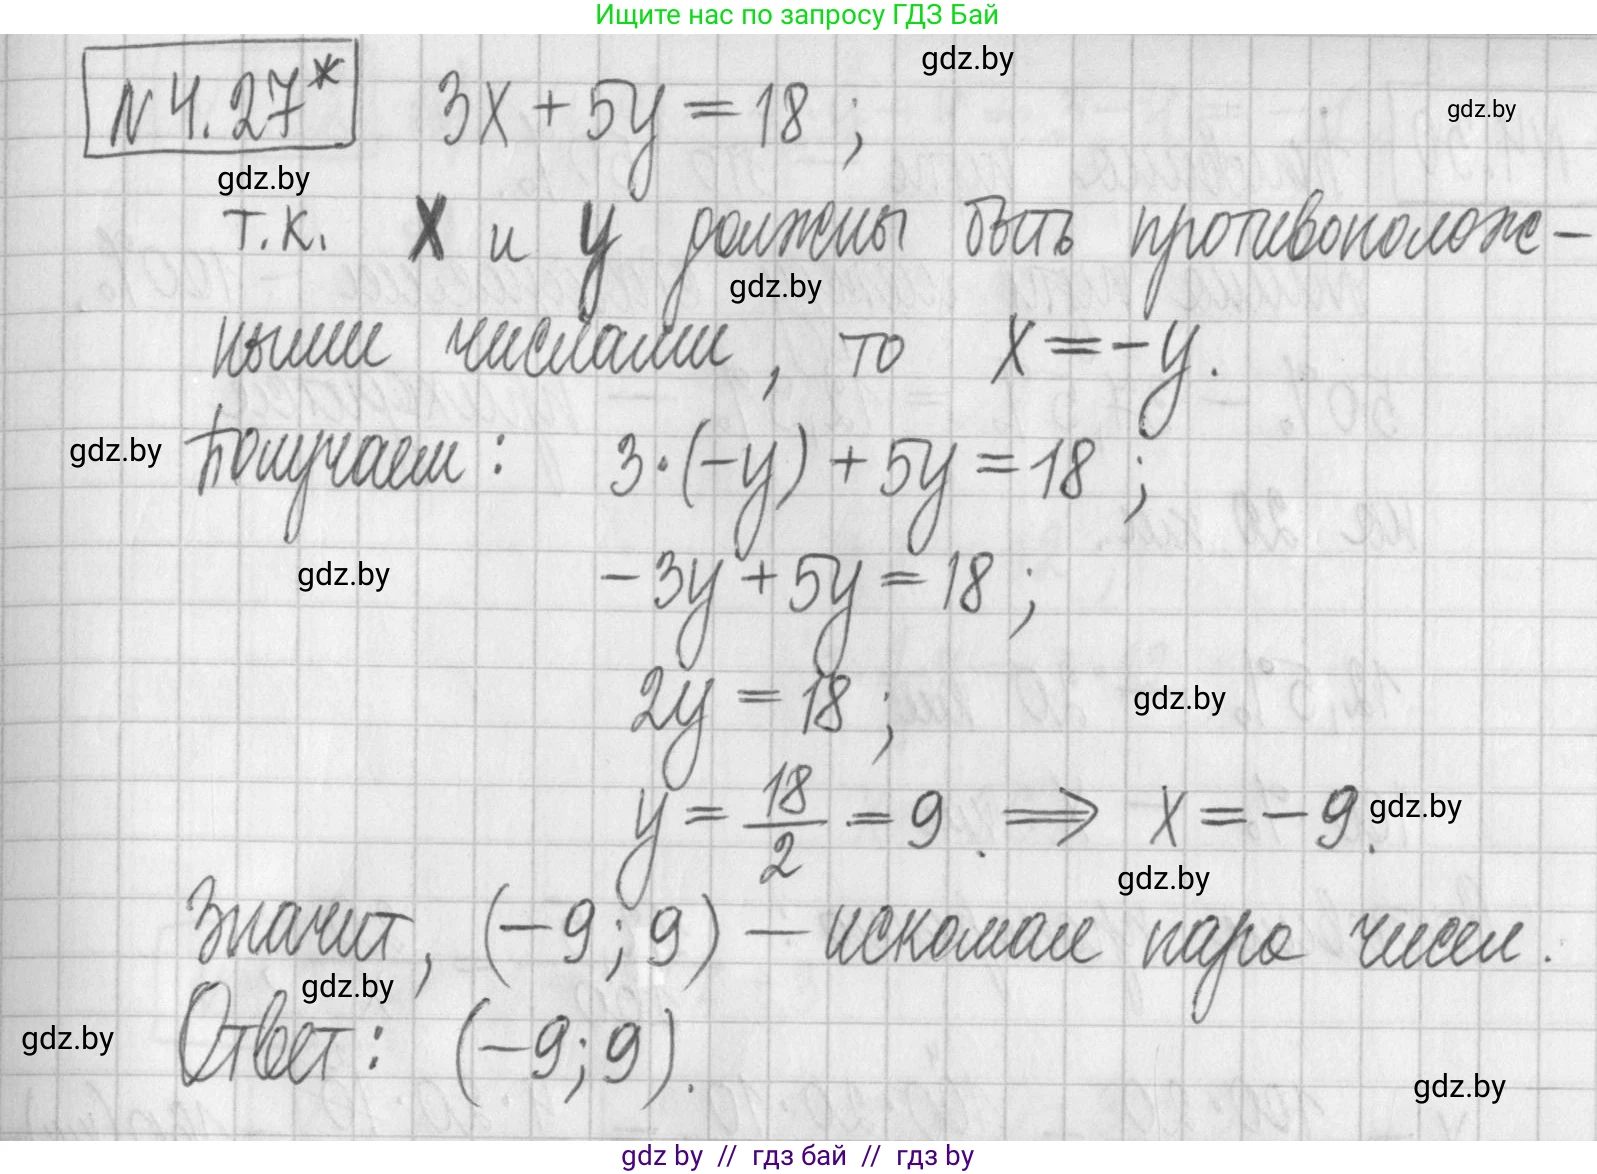 Ищите нас по запросу ГДЗ Бай
gdz.by
N 4.27* 3x + 5y = 18 ;
gdz.by
gdz.by
т.к. x и y должны быть противополож-
gdz.by
ными числами, то x = -y.
gdz.by Получаем: 3·(-y) + 5y = 18 ;
gdz.by -3y + 5y = 18 ;
2y = 18 ; gdz.by
y = 18/2 = 9. ⇒ x = -9. gdz.by
gdz.by
Значит, (-9; 9) - искомая пара чисел.
gdz.by
gdz.by Ответ: (-9; 9).
gdz.by
gdz by // гдз бай // гдз by